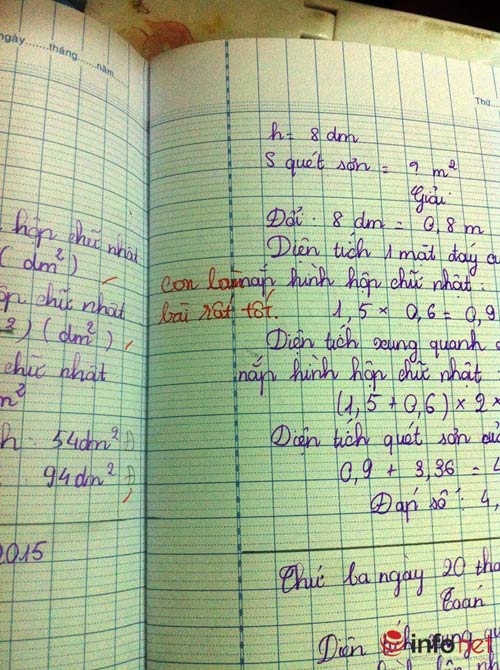 ngày......tháng......năm
hộp chữ nhật
(dm²)
hộp chữ nhật
²) (dm²)
chữ nhật
m²
h : 54dm² Đ
94dm² Đ
2015
Thứ
h = 8 dm
S quét sơn = ? m²
Giải:
Đổi: 8 dm = 0,8 m
Diện tích 1 mặt đáy
con làm nắp hình hộp chữ nhật :
bài rất tốt. 1,5 × 0,6 = 0,9
Diện tích xung quanh
nắp hình hộp chữ nhật
(1,5 + 0,6) × 2 ×
Diện tích quét sơn của
0,9 + 3,36 = 4
Đáp số : 4,
Thứ ba ngày 20 thá
Toán
Diện tích xung qu
infonet